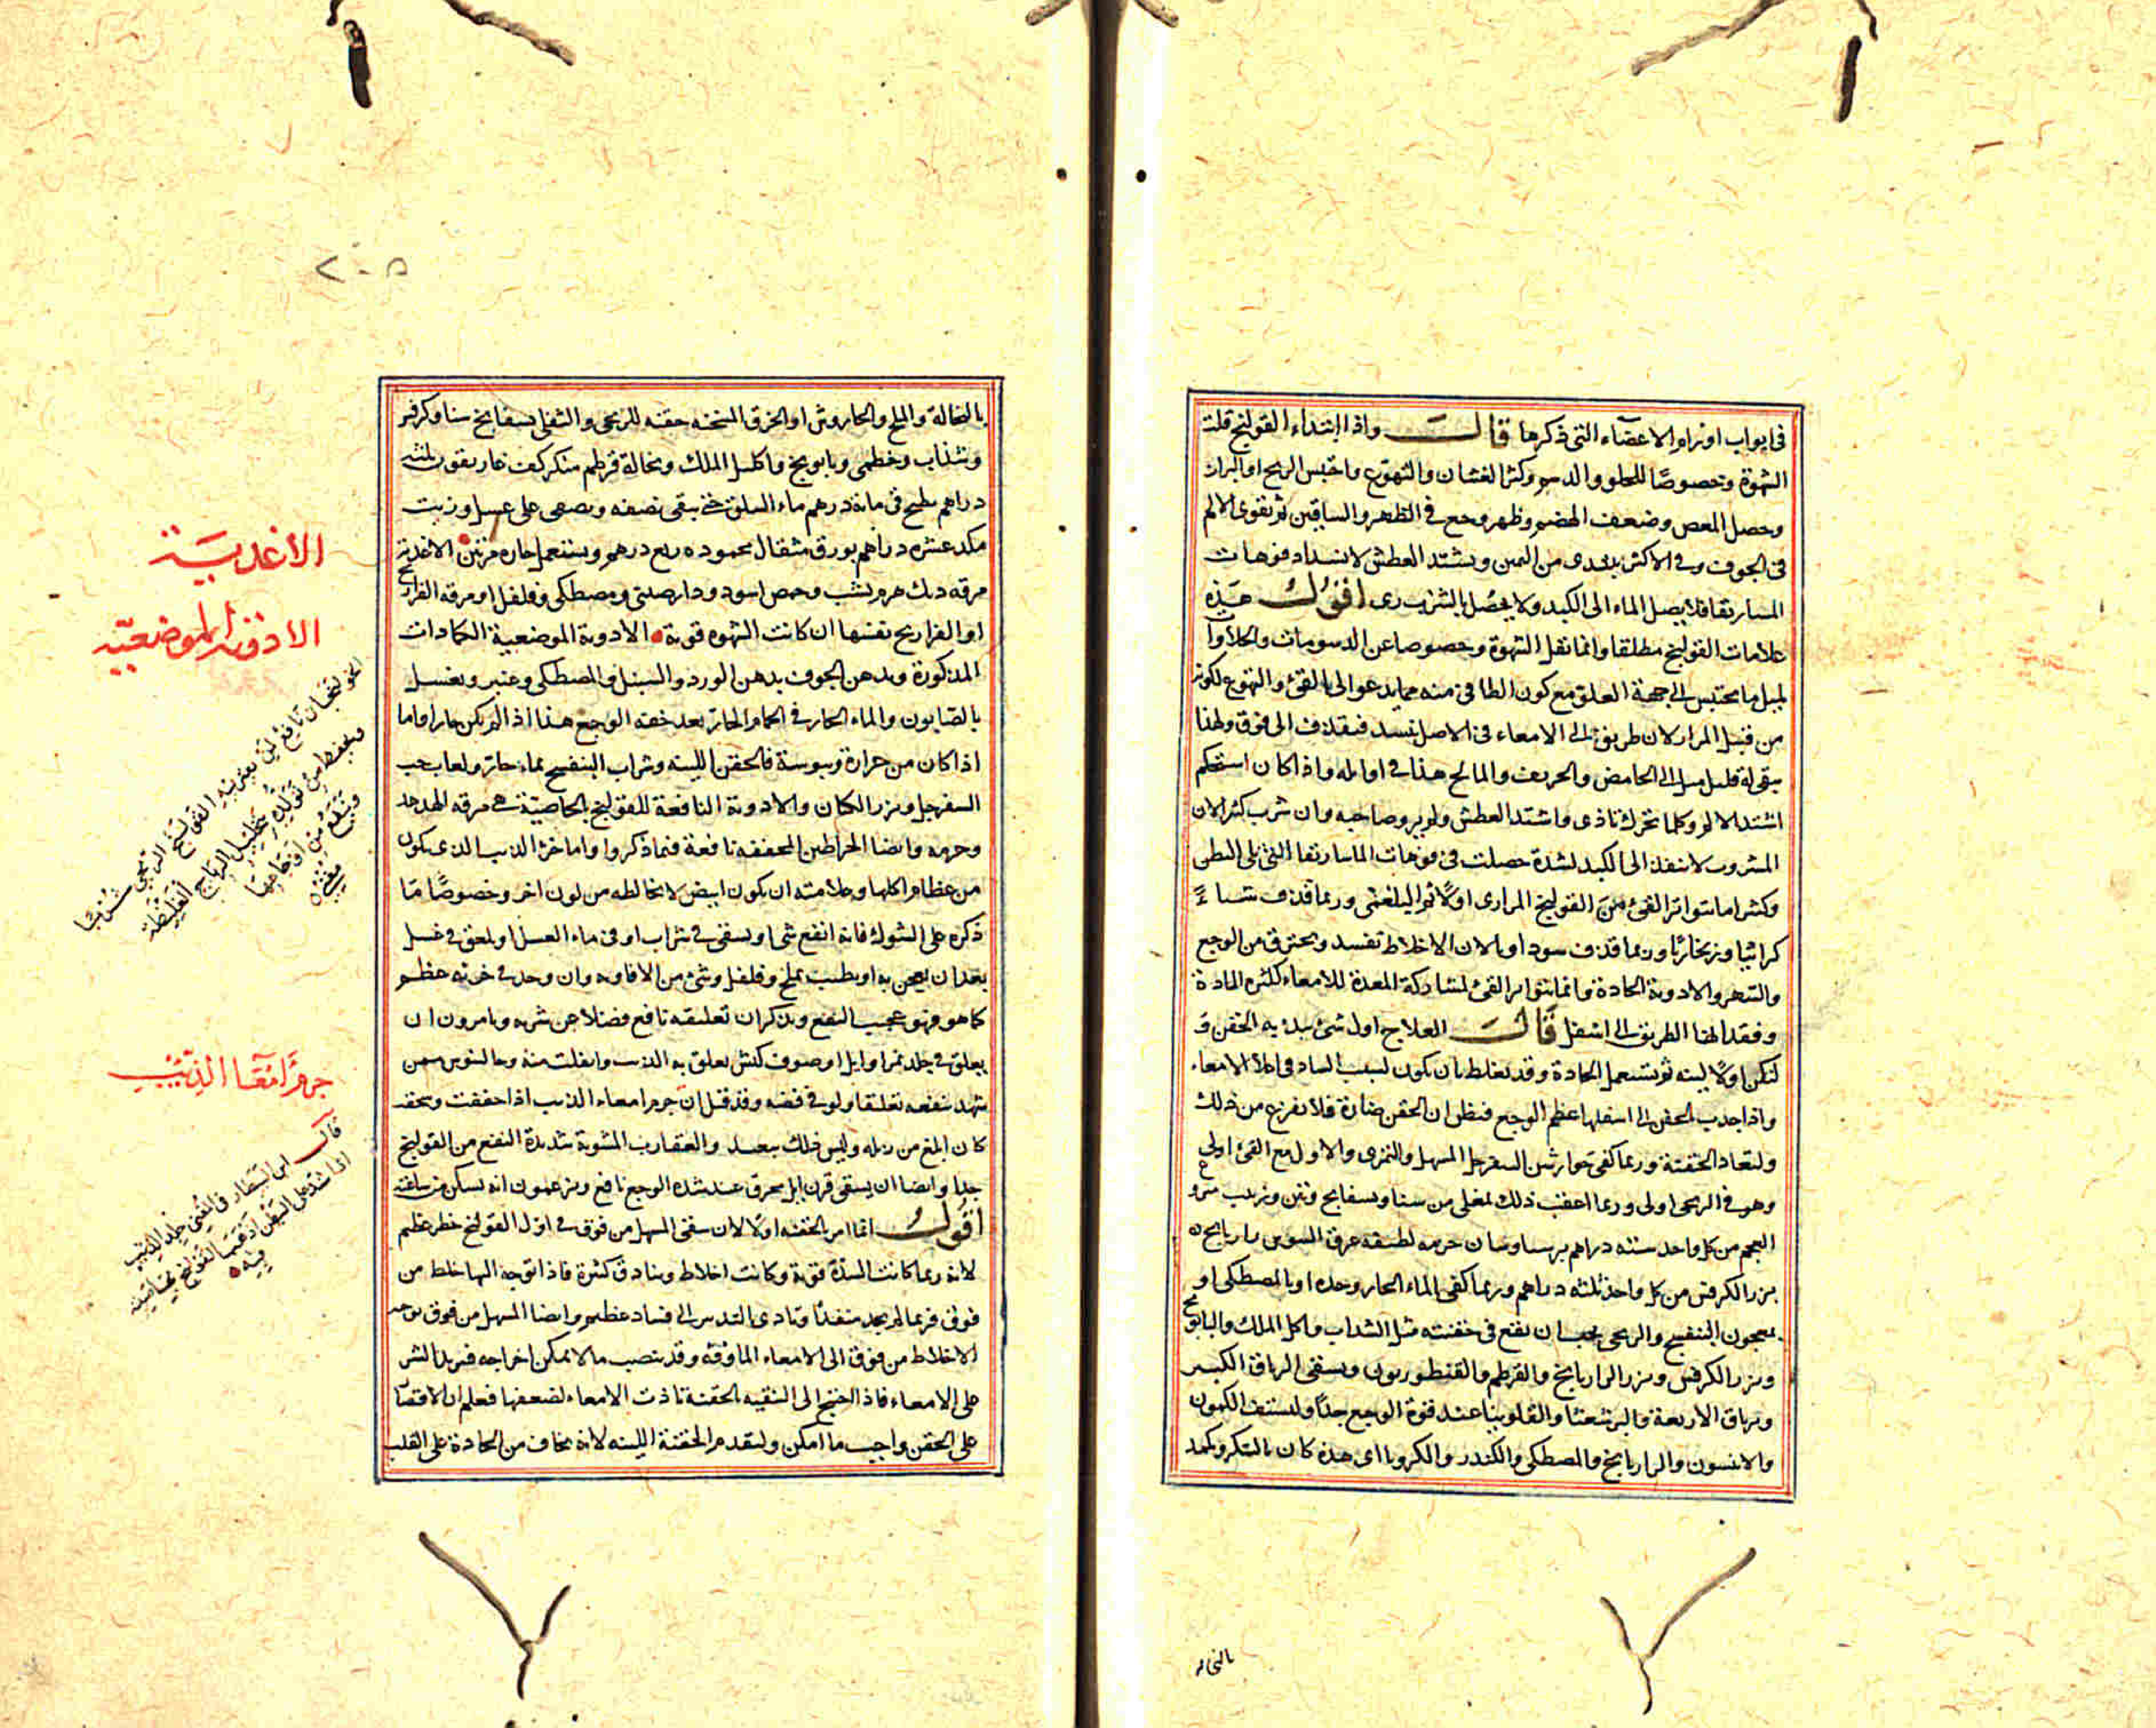 في ابواب اورام الاعضاء التي ذكرها قال واذا ابتداء القولنج قلت
الشهوة وخصوصًا للحلو والدسم وكثر الغشان والتهوع واحتبس الريح او البراز
وحصل المغص وضعف الهضم وظهر وجع في الظهر والساقين ثم تقوى الالم
في الجوف وفي الاكثر يبتدى من اليمين ويشتد العطش لانسداد فوهات
الماساريقا فلا يصل الماء الى الكبد ولا يحصل بالشرب رى اقول هذه
علامات القولنج مطلقا وانما تقل الشهوة وخصوصا عن الدسومات والحلاوات
لميل ما يحتبس الى جهة العلو مع كون الطافى منه مما يدعوا الى القئ والتهوع لكونه
من قبل المرار لان طريقه الى الامعاء في الاصل تنسد فيقذف الى فوق ولهذا
يبقى له قليل ميل الى الحامض والحريف والمالح هذا في اوائله واذا كان استحكم
اشتد الالم وكلما تحرك تاذى واشتد العطش ولم يرو صاحبه وان شرب كثيرا لان
المشروب لا ينفذ الى الكبد لشدة حصلت في فوهات الماساريقا التى تلى البطن
وكثيرا ما يتواتر القئ من القولنج المرارى اولًا ثم البلغمى وربما قذف شياءً
كراثيا وزنجاريًا وربما قذف سودا وبالان الاخلاط تفسد وتحترق من الوجع
والسهر والادوية الحادة وانما يتواتر القئ لمشاركة المعدة للامعاء لكثرة المادة
وفقدانها الطريق الى اسفل قال العلاج اول شئ يبدئ به الحقن و
لتكن اولًا لينه ثم تستعمل الحادة وقد يغلط بان يكون لسبب الساد في اعلا الامعاء
واذا جذب الحقن الى اسفلها اعظم الوجع فيظن ان الحقن ضارة فلا تفزع من ذلك
ولتعاد الحقنة وربما كفى جوارشن السفرجل المسهل والتمرى والاول مع القئ اولى
وهو في الريحى اولى وربما اعقب ذلك بمغلى من سنا وبسفايج وتين وزبيب منزوع
العجم من كل واحد ستة دراهم برسياوشان حزمه لطيفه عرق السوس رازيانج
بزر الكرفس من كل واحد ثلثه دراهم وربما كفى الماء الحار وحده او بالمصطكى او
بمعجون البنفسج والريحى يجب ان يقع في حقنته مثل الشذاب واكليل الملك والبابونج
وبزر الكرفس وبزر الرازيانج والقرطم والقنطوريون ويسقى الترياق الكبير
وترياق الاربعة والبرشعثا والفلونيا عند قوة الوجع جدًا وليستف الكمون
والانيسون والرازيانج والمصطكى والكندر والكرويا اى هذه كان بالسكر وكمد
بالنخاله
٢٠٥
بالنخالة والملح والجاروش او الخرق المسخنه حقنه للريحى والثفلى بسفايج سنا وكرفس
وشذاب وخطمى وبابونج واكليل الملك ونخالة قرطم من كل كف غاريقون ثلثه
دراهم يطبخ في مائة درهم ماء السلق حتى يبقى نصفه ويصفى على عسل وزيت
من كل عشره دراهم بورق مثقال محموده ربع درهم ويستعمل حاره مرتين الاغذيه
مرقه ديك هرم بشبت وحمص اسود ودارصينى ومصطكى وفلفل او مرقه الفراريج
او الفراريج نفسها ان كانت الشهوه قوية الادوية الموضعية الكمادات
المذكورة ويدهن الجوف بدهن الورد والسنبل والمصطكى وعنبر ويغسل
بالصابون والماء الحار في الحمام الحار بعد خفه الوجع هذا اذا لم يكن حارا واما
اذا كان من حرارة ويبوسة فالحقن اللينه وشراب البنفسج بماء حار ولعاب حب
السفرجل وبزر الكتان والادوية النافعة للقولنج بالخاصيّة هي مرقه الهدهد
وجرمه وايضا الخراطين المجففه نافعة فيما ذكروا واما خرؤ الذيب الذى يكون
من عظام اكلها وعلامته ان يكون ابيض لا يخالطه من لون اخر وخصوصًا ما
ذكره على الشوك فانه انفع شى او يسقى في شراب او في ماء العسل او يلعق في عسل
بعد ان يعجن به او يطيب بملح وفلفل وشئ من الافاويه وان وجد في خرئه عظم
كما هو فهو عجيب النفع ويذكر ان تعليقه نافع فضلا عن شربه ويامرون ان
يعلق في جلد نمر او ايل او صوف كبش يعلق به الذيب وانفلت منه وجالينوس ممن
شهد بنفعه تعليقا ولو في فضه وقد قيل ان جرم امعاء الذيب اذا جففت وسحقت
كان ابلغ من زبله وليس ذلك ببعيد والعقارب المشوية شديدة النفع من القولنج
جدا وايضا ان يسقى قرن ايل محرق عند شده الوجع نافع ويزعمون انه يسكن من ساعته
اقول انما امر بالحقنه اولا لان سقى المسهل من فوق في اول القولنج خطر عظيم
لانه ربما كانت السدة قوية وكانت اخلاط وبنادق كثيرة فاذا توجه اليها خلط من
فوق فربما لم يجد منفذًا وتادى بالتدبير الى فساد عظيم وايضا المسهل من فوق يوجه
الاخلاط من فوق الى الامعاء الماوفه وقد ينصب ما لا يمكن اخراجه فيزيد الشر
على الامعاء فاذا احتيج الى التنقيه بالحقنة تاذت الامعاء لضعفها فعلم ان الاقتصار
على الحقن واجب ما امكن وليقدم الحقنة اللينه لانه يخاف من الحادة على القلب
الاغديَة
الادوية الموضعيّه
الخولنجان نافع لمن يعتريه القولنج الريحى شربًا
ويحفظ من تولده بتحليل الرياح الغليظه
وينفع من اوجاعها
مغنى
جرم امعآ الذئب
قال ابن البيطار في المغنى جلد الذئب
اذا شد على البطن اذهب القولنج بخاصيته
فيه